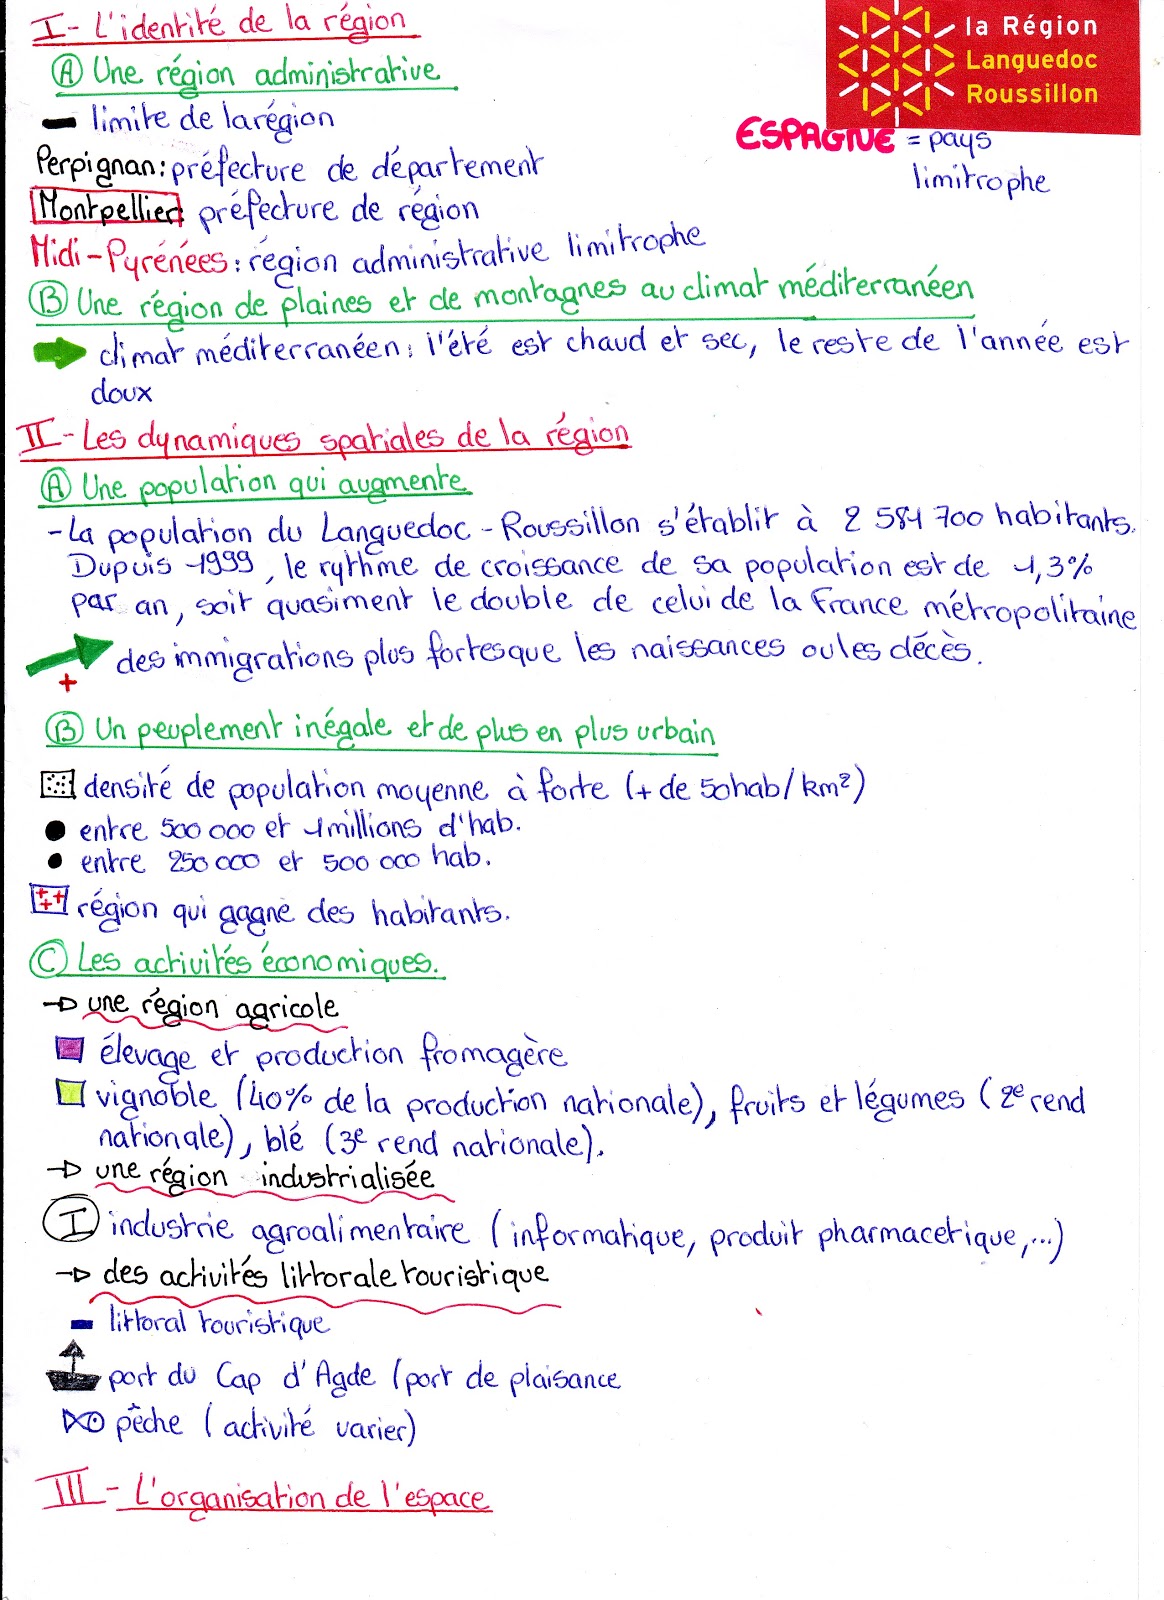 I - L'identité de la région
la Région
Languedoc
Roussillon
A Une région administrative
limite de la région
ESPAGNE = pays
limitrophe
Perpignan : préfecture de département
Montpellier : préfecture de région
Midi-Pyrénées : région administrative limitrophe
B Une région de plaines et de montagnes au climat méditerranéen
climat méditerranéen : l'été est chaud et sec, le reste de l'année est
doux
II - Les dynamiques spatiales de la région
A Une population qui augmente
- La population du Languedoc - Roussillon s'établit à 2 581 700 habitants.
Dupuis 1999, le rythme de croissance de sa population est de 1,3%
par an, soit quasiment le double de celui de la France métropolitaine
des immigrations plus fortes que les naissances ou les décès.
+
B Un peuplement inégale et de plus en plus urbain
densité de population moyenne à forte (+ de 50 hab/km²)
entre 500 000 et 1 millions d'hab.
entre 250 000 et 500 000 hab.
région qui gagne des habitants.
C Les activités économiques.
→ une région agricole
élevage et production fromagère
vignoble (40% de la production nationale), fruits et légumes (2e rend
nationale), blé (3e rend nationale).
→ une région industrialisée
I industrie agroalimentaire (informatique, produit pharmacetique,...)
→ des activités littorale touristique
littoral touristique
port du Cap d'Agde (port de plaisance
pêche (activité varier)
III - L'organisation de l'espace